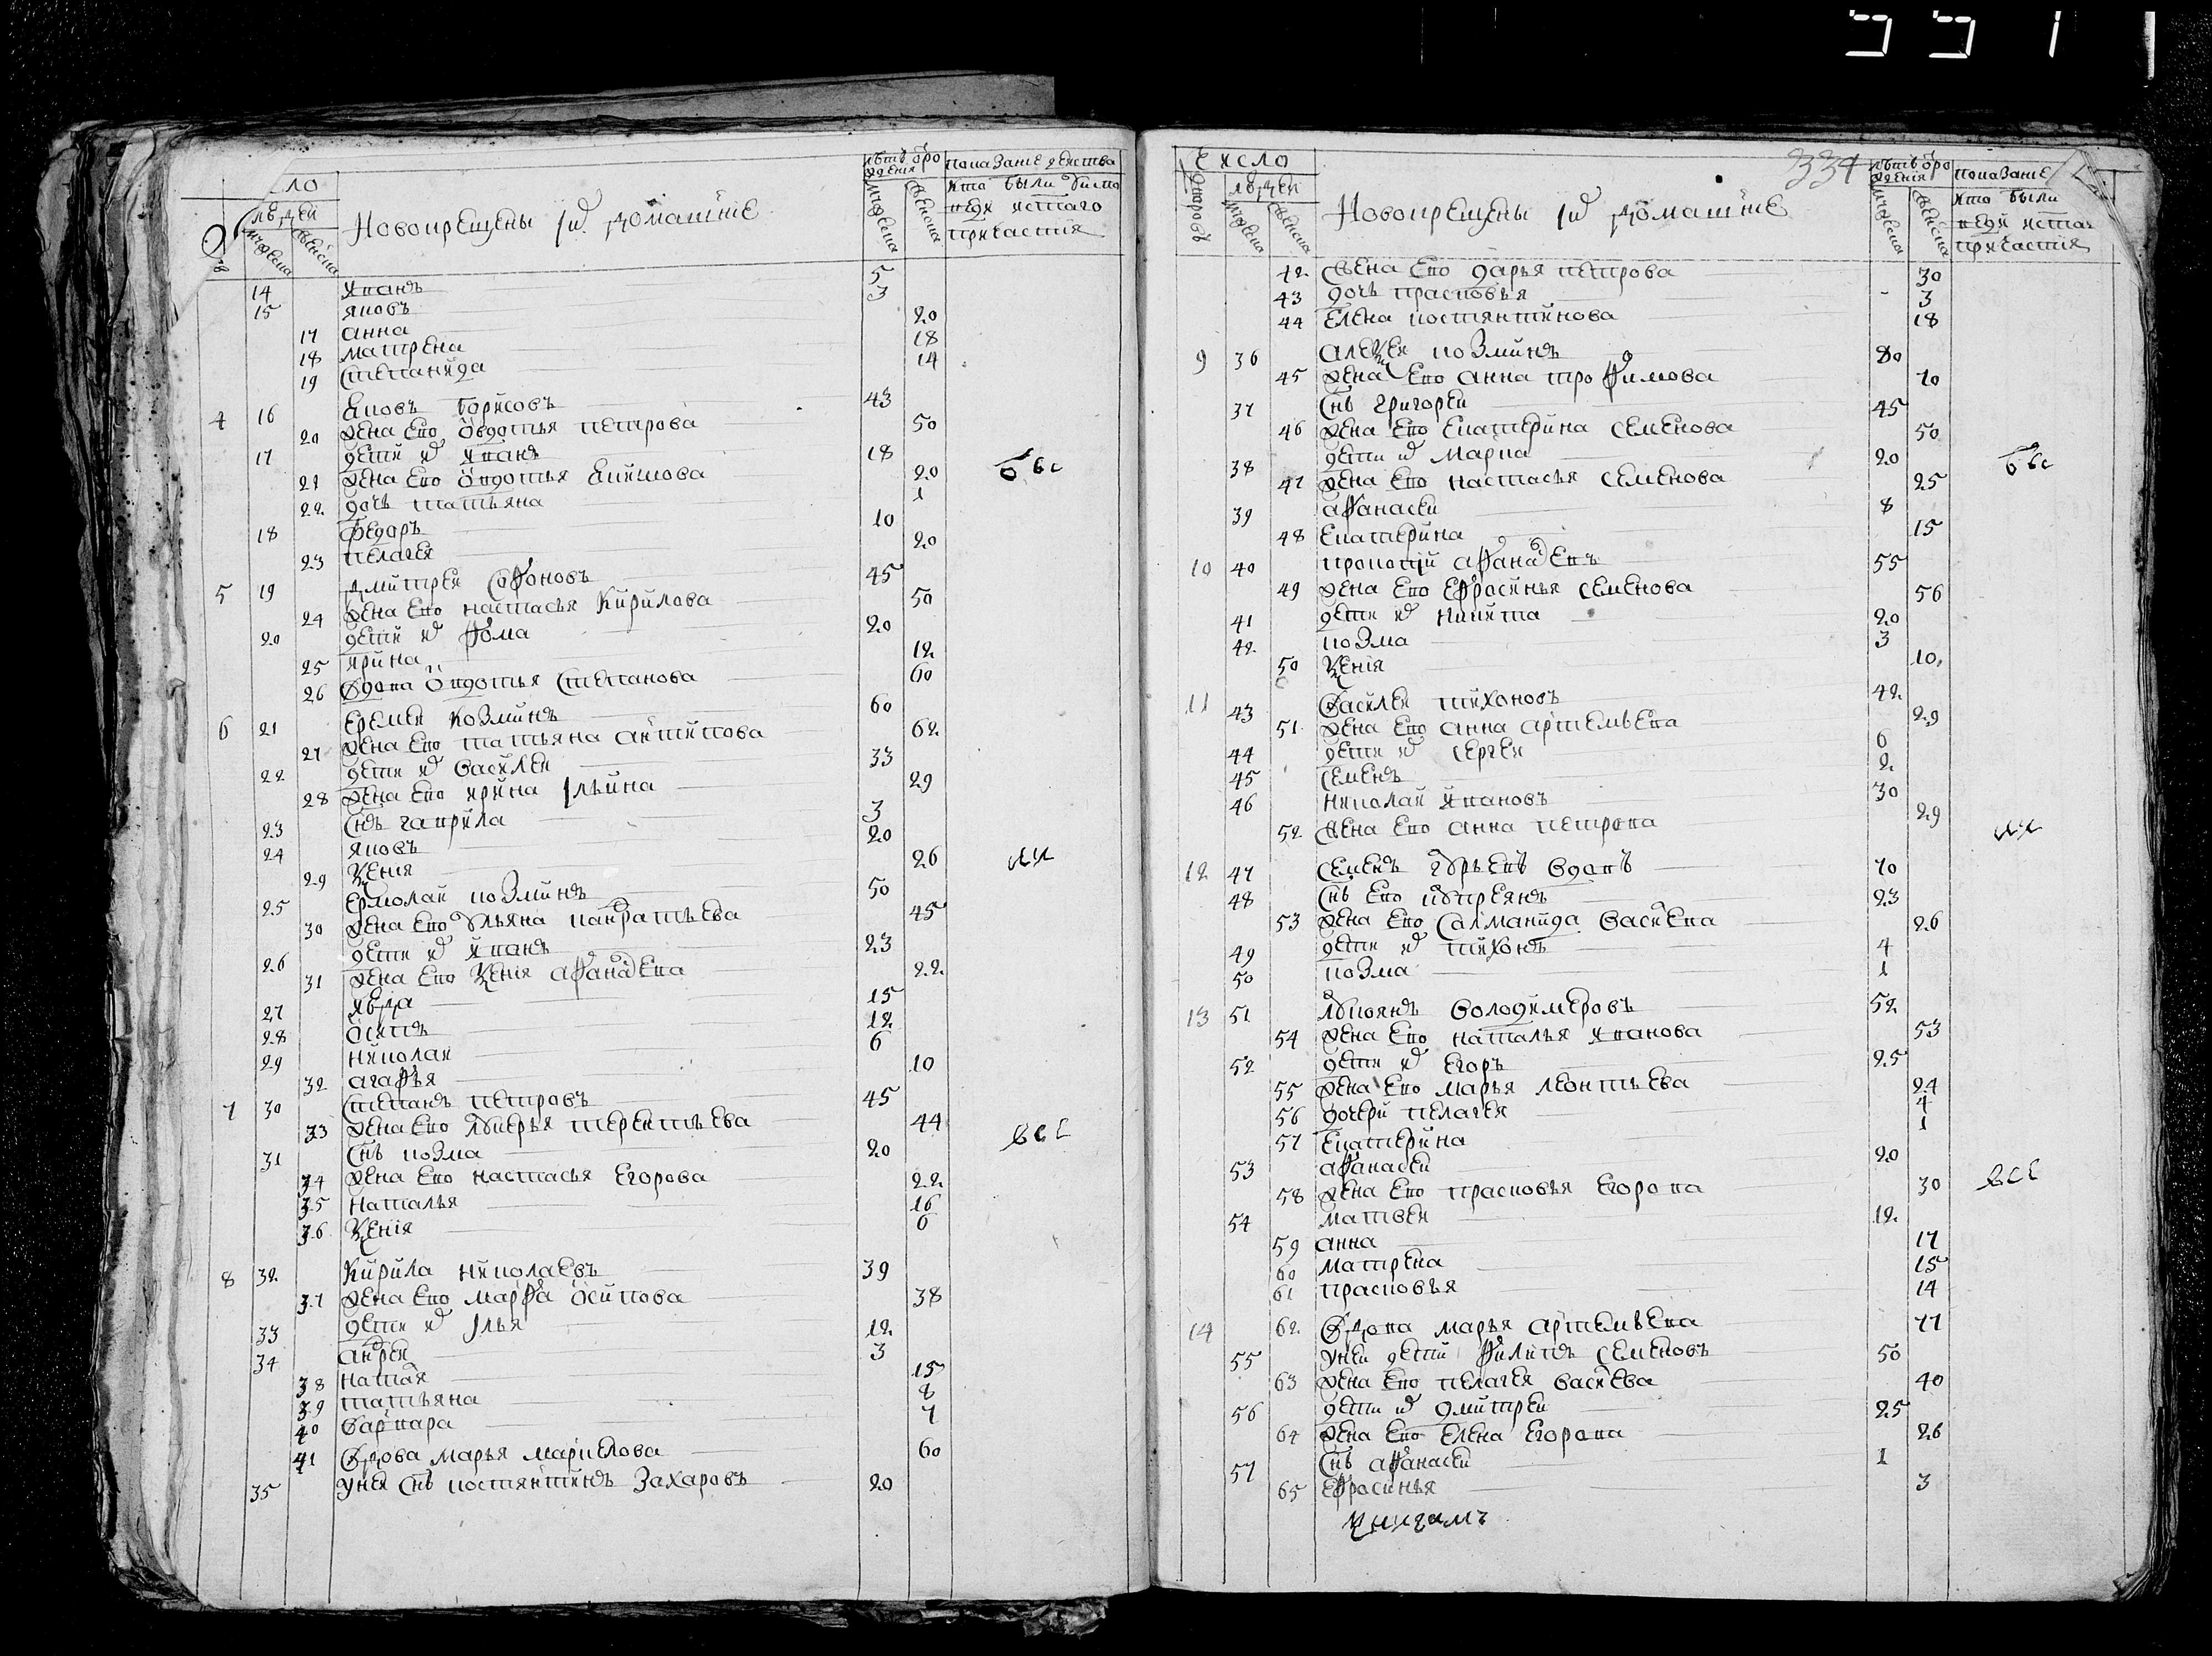 Новокрещены і ихъ домашние
14 Иванъ 5
15 яковъ 3
17 анна 20
18 матрена 18
19 степанида 14
4 16 яковъ борисовъ 43
20 жена ево овдотья петрова 50
17 дети их иванъ 18
21 жена ево овдотья 20
22 дочь татьяна 1
18 федоръ 10
23 пелагея 20
5 19 дмитреи сафоновъ 45
24 жена ево настасья кирилова 50
20 дети их фома 20
25 ирина 12
26 вдова овдотья степанова 60
6 21 еремеи козминъ 60
27 жена ево татьяна антипова 62
22 дети их василеи 33
28 жена ево ирина ильина 29
23 снъ гаврила 3
24 яковъ 20
29 ксения 26
25 ермолаи козминъ 50
30 жена ево ульяна панкратьева 45
26 дети их иванъ 23
31 жена ево ксенія афанасева 22
27 15
28 осипъ 12
29 николаи 6
32 агафья 10
7 30 степанъ петровъ 45
33 жена ево терентьева 44
31 снъ козма 20
34 жена ево настасья егорова 22
35 наталья 16
36 ксенія 6
8 32 кирила николаевъ 39
37 жена ево марфа осипова 38
33 дети их илья 12
34 андреи 3
38 15
39 татьяна 8
40 варвара 7
41 вдова марья маркелова 60
35 у неи снъ костянтинъ захаровъ 20
все
334
число
Новокрещены і ихъ домашние
42 жена ево дарья петрова 30
43 дочь прасковья 3
44 елена костянтинова 18
9 36 алексеи козминъ 80
45 жена ево анна трофимова 70
37 снъ григореи 45
46 жена ево екатерина семенова 50
38 дети их марка 20
47 жена ево настасья семенова 25
39 афанасеи 8
48 екатерина 15
10 40 прокопіи афанасевъ 55
49 жена ево ефросинья семенова 56
41 дети их никита 20
42 козма 3
50 ксенія 10
11 43 василеи тихоновъ 42
51 жена ево анна артемьева 29
44 дети их сергеи 6
45 семенъ 2
46 николаи ивановъ 30
52 жена ево анна петрова 29
12 47 семенъ вдовъ 70
48 снъ ево 23
53 жена ево саломанида васиева 26
49 дети их тихонъ 4
50 козма 1
13 51 володимеровъ 52
54 жена ево наталья иванова 53
52 дети их егоръ 25
55 жена ево марья леонтьева 24
56 дочери пелагея 4
57 екатерина 1
53 афанасеи 20
58 жена ево прасковья егорова 30
54 матвеи 12
59 анна 17
60 матрена 15
61 прасковья 14
14 62 вдова марья артемьева 77
55 у неи дети филипъ семеновъ 50
63 жена ево пелагея васиева 40
56 дети их дмитреи 25
64 жена ево елена егорова 26
57 снъ афанасеи 1
65 ефросинья 3
все